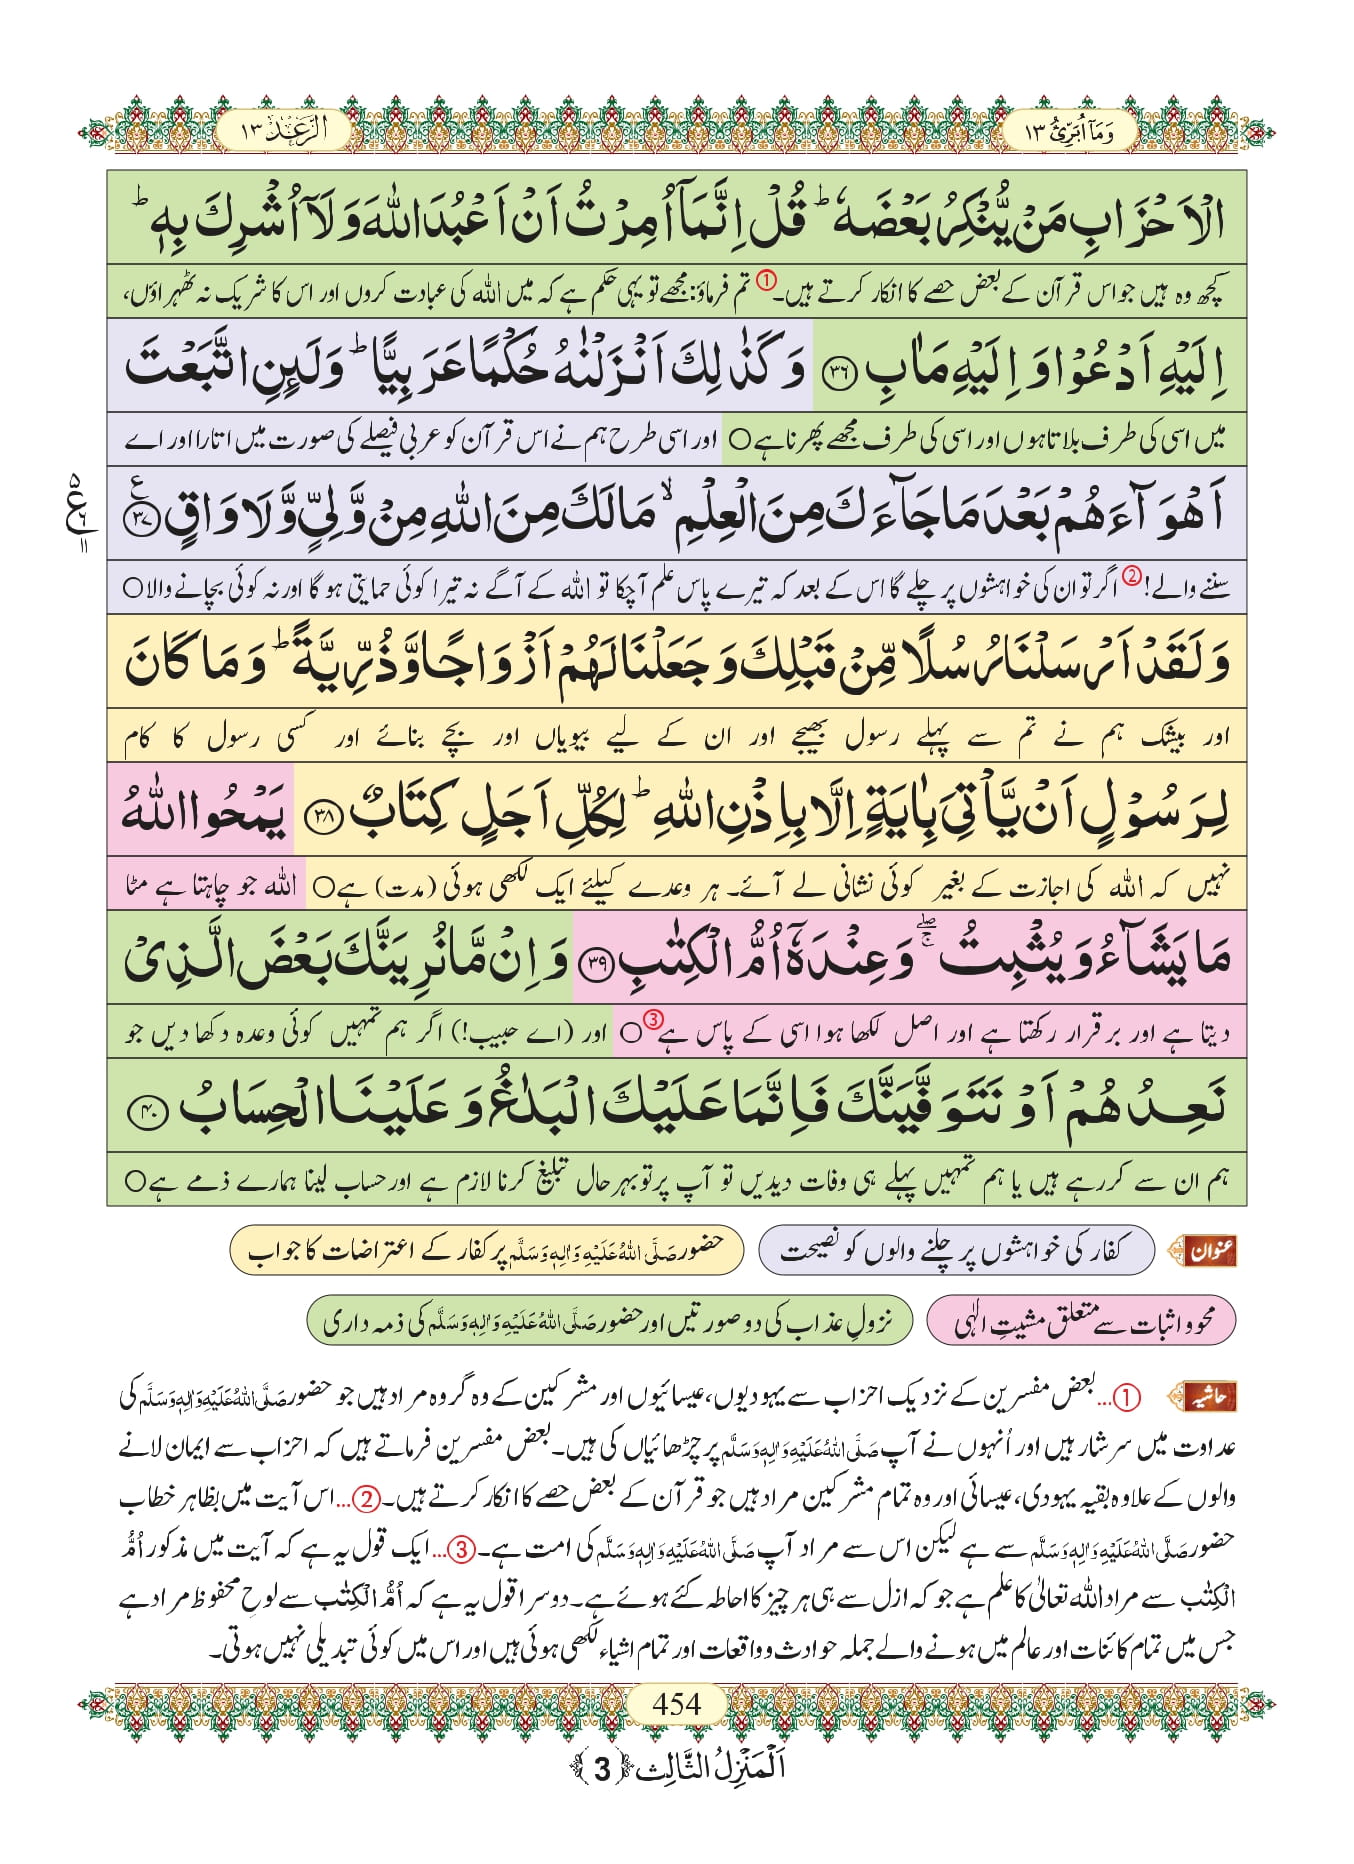 وَمَاۤ اُبَرِّئُ ١٣
الرَّعْد ١٣
الْاَحْزَابِ مَنْ یُّنْكِرُ بَعْضَهٗؕ قُلْ اِنَّمَاۤ اُمِرْتُ اَنْ اَعْبُدَ اللّٰهَ وَ لَاۤ اُشْرِكَ بِهٖؕ
کچھ وہ ہیں جو اس قرآن کے بعض حصے کا انکار کرتے ہیں۔① تم فرماؤ: مجھے تو یہی حکم ہے کہ میں اللہ کی عبادت کروں اور اس کا شریک نہ ٹھہراؤں،
اِلَیْهِ اَدْعُوْا وَ اِلَیْهِ مَاٰبِ ﴿۳۶﴾ وَ كَذٰلِكَ اَنْزَلْنٰهُ حُكْمًا عَرَبِیًّاؕ وَ لَىِٕنِ اتَّبَعْتَ
میں اسی کی طرف بلاتا ہوں اور اسی کی طرف مجھے پھرنا ہے○ اور اسی طرح ہم نے اس قرآن کو عربی فیصلے کی صورت میں اتارا اور اے
اَهْوَآءَهُمْ بَعْدَ مَا جَآءَكَ مِنَ الْعِلْمِۙ مَا لَكَ مِنَ اللّٰهِ مِنْ وَّلِیٍّ وَّ لَا وَاقٍ ﴿۳۷﴾ ع
٥
ع
٦
١١
سننے والے!② اگر تو ان کی خواہشوں پر چلے گا اس کے بعد کہ تیرے پاس علم آچکا تو اللہ کے آگے نہ تیرا کوئی حمایتی ہو گا اور نہ کوئی بچانے والا○
وَ لَقَدْ اَرْسَلْنَا رُسُلًا مِّنْ قَبْلِكَ وَ جَعَلْنَا لَهُمْ اَزْوَاجًا وَّ ذُرِّیَّةًؕ وَ مَا كَانَ
اور بیشک ہم نے تم سے پہلے رسول بھیجے اور ان کے لیے بیویاں اور بچے بنائے اور کسی رسول کا کام
لِرَسُوْلٍ اَنْ یَّاْتِیَ بِاٰیَةٍ اِلَّا بِاِذْنِ اللّٰهِؕ لِكُلِّ اَجَلٍ كِتَابٌ ﴿۳۸﴾ یَمْحُوا اللّٰهُ
نہیں کہ اللہ کی اجازت کے بغیر کوئی نشانی لے آئے۔ ہر وعدے کیلئے ایک لکھی ہوئی (مدت) ہے○ اللہ جو چاہتا ہے مٹا
مَا یَشَآءُ وَ یُثْبِتُ ۚۖ وَ عِنْدَهٗۤ اُمُّ الْكِتٰبِ ﴿۳۹﴾ وَ اِنْ مَّا نُرِیَنَّكَ بَعْضَ الَّذِیْ
دیتا ہے اور برقرار رکھتا ہے اور اصل لکھا ہوا اسی کے پاس ہے③○ اور (اے حبیب!) اگر ہم تمہیں کوئی وعدہ دکھا دیں جو
نَعِدُهُمْ اَوْ نَتَوَفَّیَنَّكَ فَاِنَّمَا عَلَیْكَ الْبَلٰغُ وَ عَلَیْنَا الْحِسَابُ ﴿۴۰﴾
ہم ان سے کررہے ہیں یا ہم تمہیں پہلے ہی وفات دیدیں تو آپ پر تو بہر حال تبلیغ کرنا لازم ہے اور حساب لینا ہمارے ذمے ہے○
عنوان کفار کی خواہشوں پر چلنے والوں کو نصیحت حضور صَلَّی اللہُ عَلَیْہِ وَاٰلِہٖ وَسَلَّم پر کفار کے اعتراضات کا جواب
محو و اثبات سے متعلق مشیتِ الٰہی نزولِ عذاب کی دو صورتیں اور حضور صَلَّی اللہُ عَلَیْہِ وَاٰلِہٖ وَسَلَّم کی ذمہ داری
حاشیہ ①... بعض مفسرین کے نزدیک احزاب سے یہودیوں، عیسائیوں اور مشرکین کے وہ گروہ مراد ہیں جو حضور صَلَّی اللہُ عَلَیْہِ وَاٰلِہٖ وَسَلَّم کی
عداوت میں سرشار ہیں اور اُنہوں نے آپ صَلَّی اللہُ عَلَیْہِ وَاٰلِہٖ وَسَلَّم پر چڑھائیاں کی ہیں۔ بعض مفسرین فرماتے ہیں کہ احزاب سے ایمان لانے
والوں کے علاوہ بقیہ یہودی، عیسائی اور وہ تمام مشرکین مراد ہیں جو قرآن کے بعض حصے کا انکار کرتے ہیں۔ ②... اس آیت میں بظاہر خطاب
حضور صَلَّی اللہُ عَلَیْہِ وَاٰلِہٖ وَسَلَّم سے ہے لیکن اس سے مراد آپ صَلَّی اللہُ عَلَیْہِ وَاٰلِہٖ وَسَلَّم کی امت ہے۔ ③... ایک قول یہ ہے کہ آیت میں مذکور اُمُّ
الْکِتٰب سے مراد اللہ تعالیٰ کا علم ہے جو کہ ازل سے ہی ہر چیز کا احاطہ کئے ہوئے ہے۔ دوسرا قول یہ ہے کہ اُمُّ الْکِتٰب سے لوحِ محفوظ مراد ہے
جس میں تمام کائنات اور عالم میں ہونے والے جملہ حوادث و واقعات اور تمام اشیاء لکھی ہوئی ہیں اور اس میں کوئی تبدیلی نہیں ہوتی۔
454
اَلْمَنْزِلُ الثَّالِث ﴿3﴾